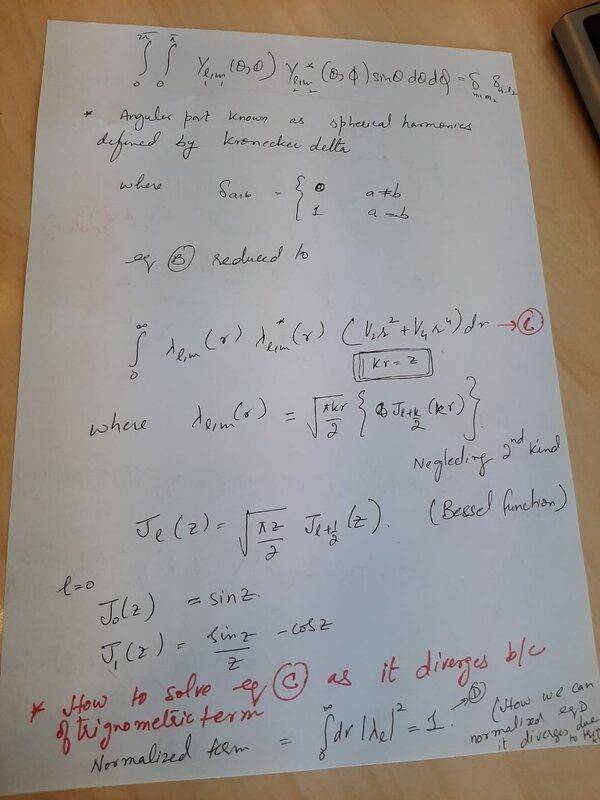 ∫₀^{2π} ∫₀^{π} Y_{l₁m₁}(θ,φ) Y*_{l₂m₂}(θ,φ) sinθ dθ dφ = δ_{m₁m₂} δ_{l₁l₂}
* Angular part known as spherical harmonics
defined by Kronecker delta
where δ_{a,b} = { 0 a≠b
1 a=b
eq (B) reduced to
∫₀^∞ λ_{l,m}(r) λ*_{l,m}(r) (V₂r²+V₄r⁴)dr → (C)
kr = z
where λ_{l,m}(r) = √(πkr/2) { J_{l+½}(kr) }
Neglecting 2nd kind
J_l(z) = √(πz/2) J_{l+½}(z). (Bessel function)
l=0
J₀(z) = sinz.
J₁(z) = sinz/z - cosz
* How to solve eq (C) as it diverges b/c
of trignometric term
Normalized term = ∫₀^∞ dr |λ_l|² = 1. → (D)
(How we can
normalized eq D
it diverges due
to